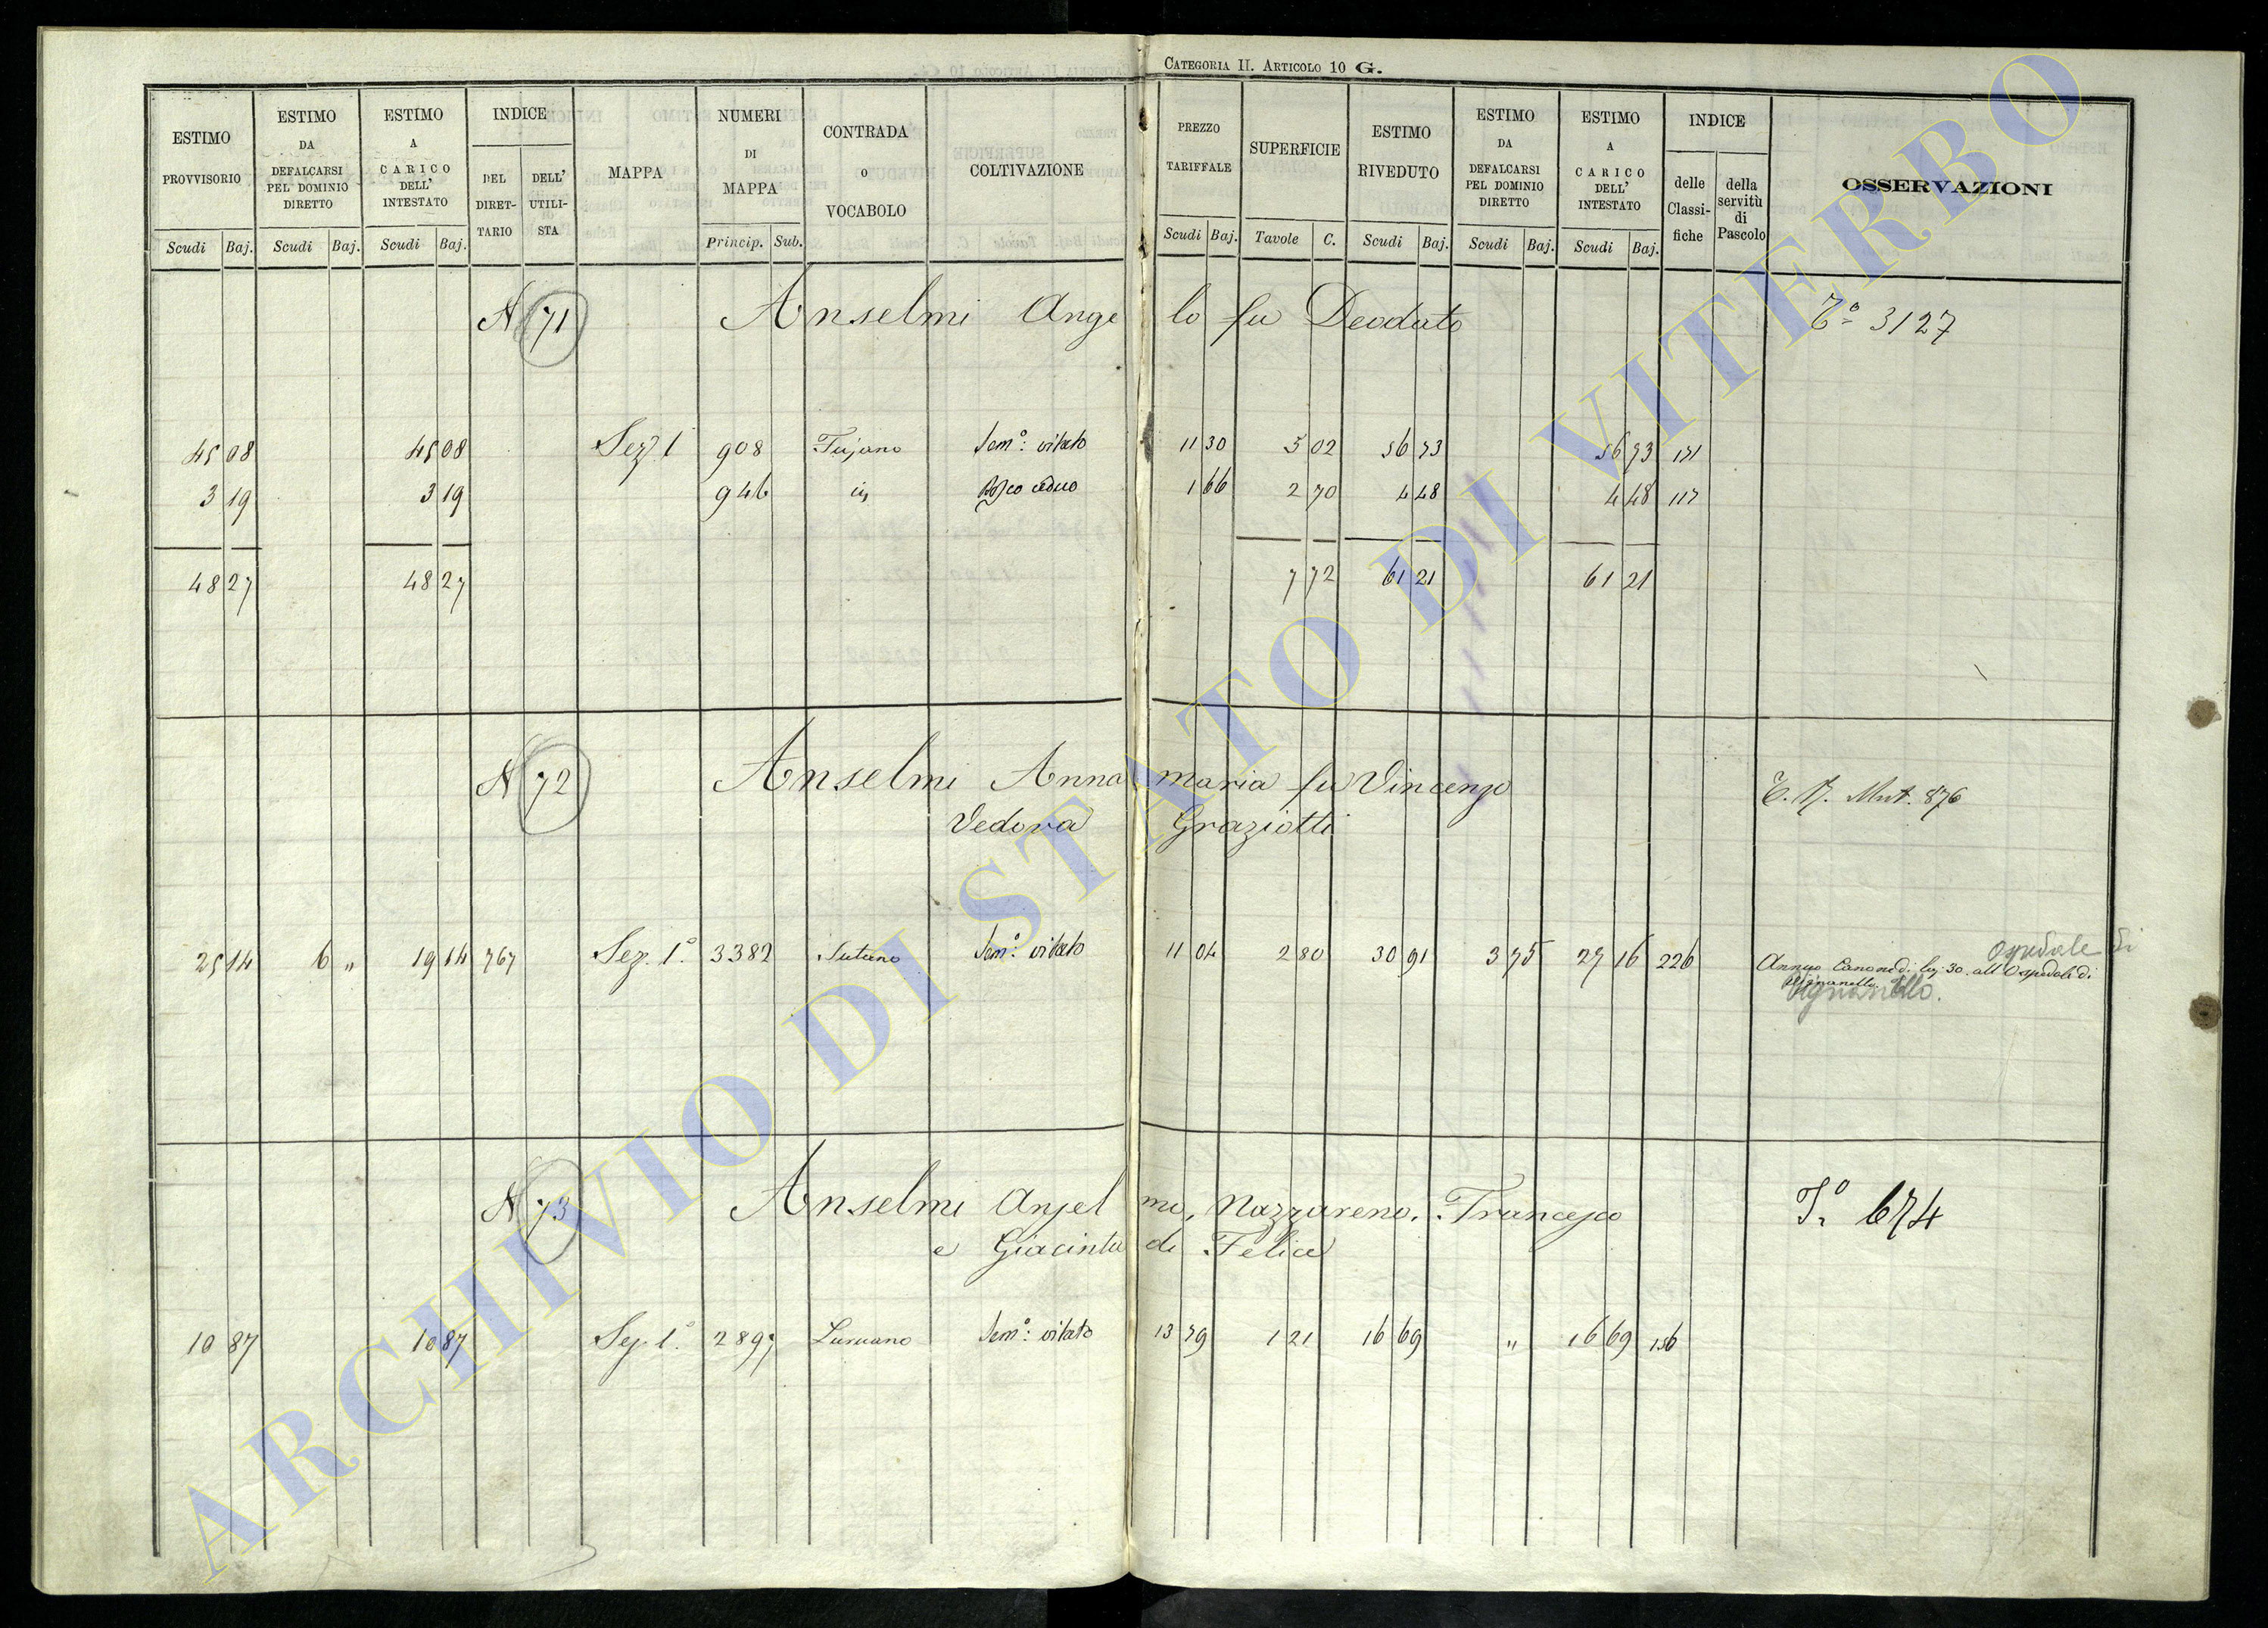 CATEGORIA II. ARTICOLO 10 G.
ESTIMO PROVVISORIO Scudi Baj. ESTIMO DA DEFALCARSI PEL DOMINIO DIRETTO Scudi Baj. ESTIMO A CARICO DELL' INTESTATO Scudi Baj. INDICE DEL DIRET-TARIO DELL' UTILI-STA MAPPA NUMERI DI MAPPA Princip. Sub. CONTRADA O VOCABOLO COLTIVAZIONE PREZZO TARIFFALE Scudi Baj. SUPERFICIE Tavole C. ESTIMO RIVEDUTO Scudi Baj. ESTIMO DA DEFALCARSI PEL DOMINIO DIRETTO Scudi Baj. ESTIMO A CARICO DELL' INTESTATO Scudi Baj. INDICE delle Classi-fiche della servitù di Pascolo OSSERVAZIONI
N 71 Anselmi Angelo fu Deodato 3127
45 08 45 08 Sez. 1 908 Sem.º vitato 11 30 5 02 56 73 56 73 171
3 19 3 19 946 Bosco ceduo 1 66 2 70 4 48 4 48 117
48 27 48 27 7 72 61 21 61 21
N 72 Anselmi Anna maria fu Vincenzo Mut. 876
Vedova Graziotti
25 14 6 " 19 14 767 Sez. 1.º 3382 Sem.º vitato 11 04 2 80 30 91 3 75 27 16 226 Ospedale di
Annuo Canone di baj. 30. all'Ospedale di
Vignanello.
Vignanello.
N 73 Anselmi Anselmo, Nazzareno, Francesco Tº 674
e Giacinta di Felice
10 87 10 87 Sez. 1.º 2897 Sem.º vitato 13 79 1 21 16 69 " 16 69 156
ARCHIVIO DI STATO DI VITERBO